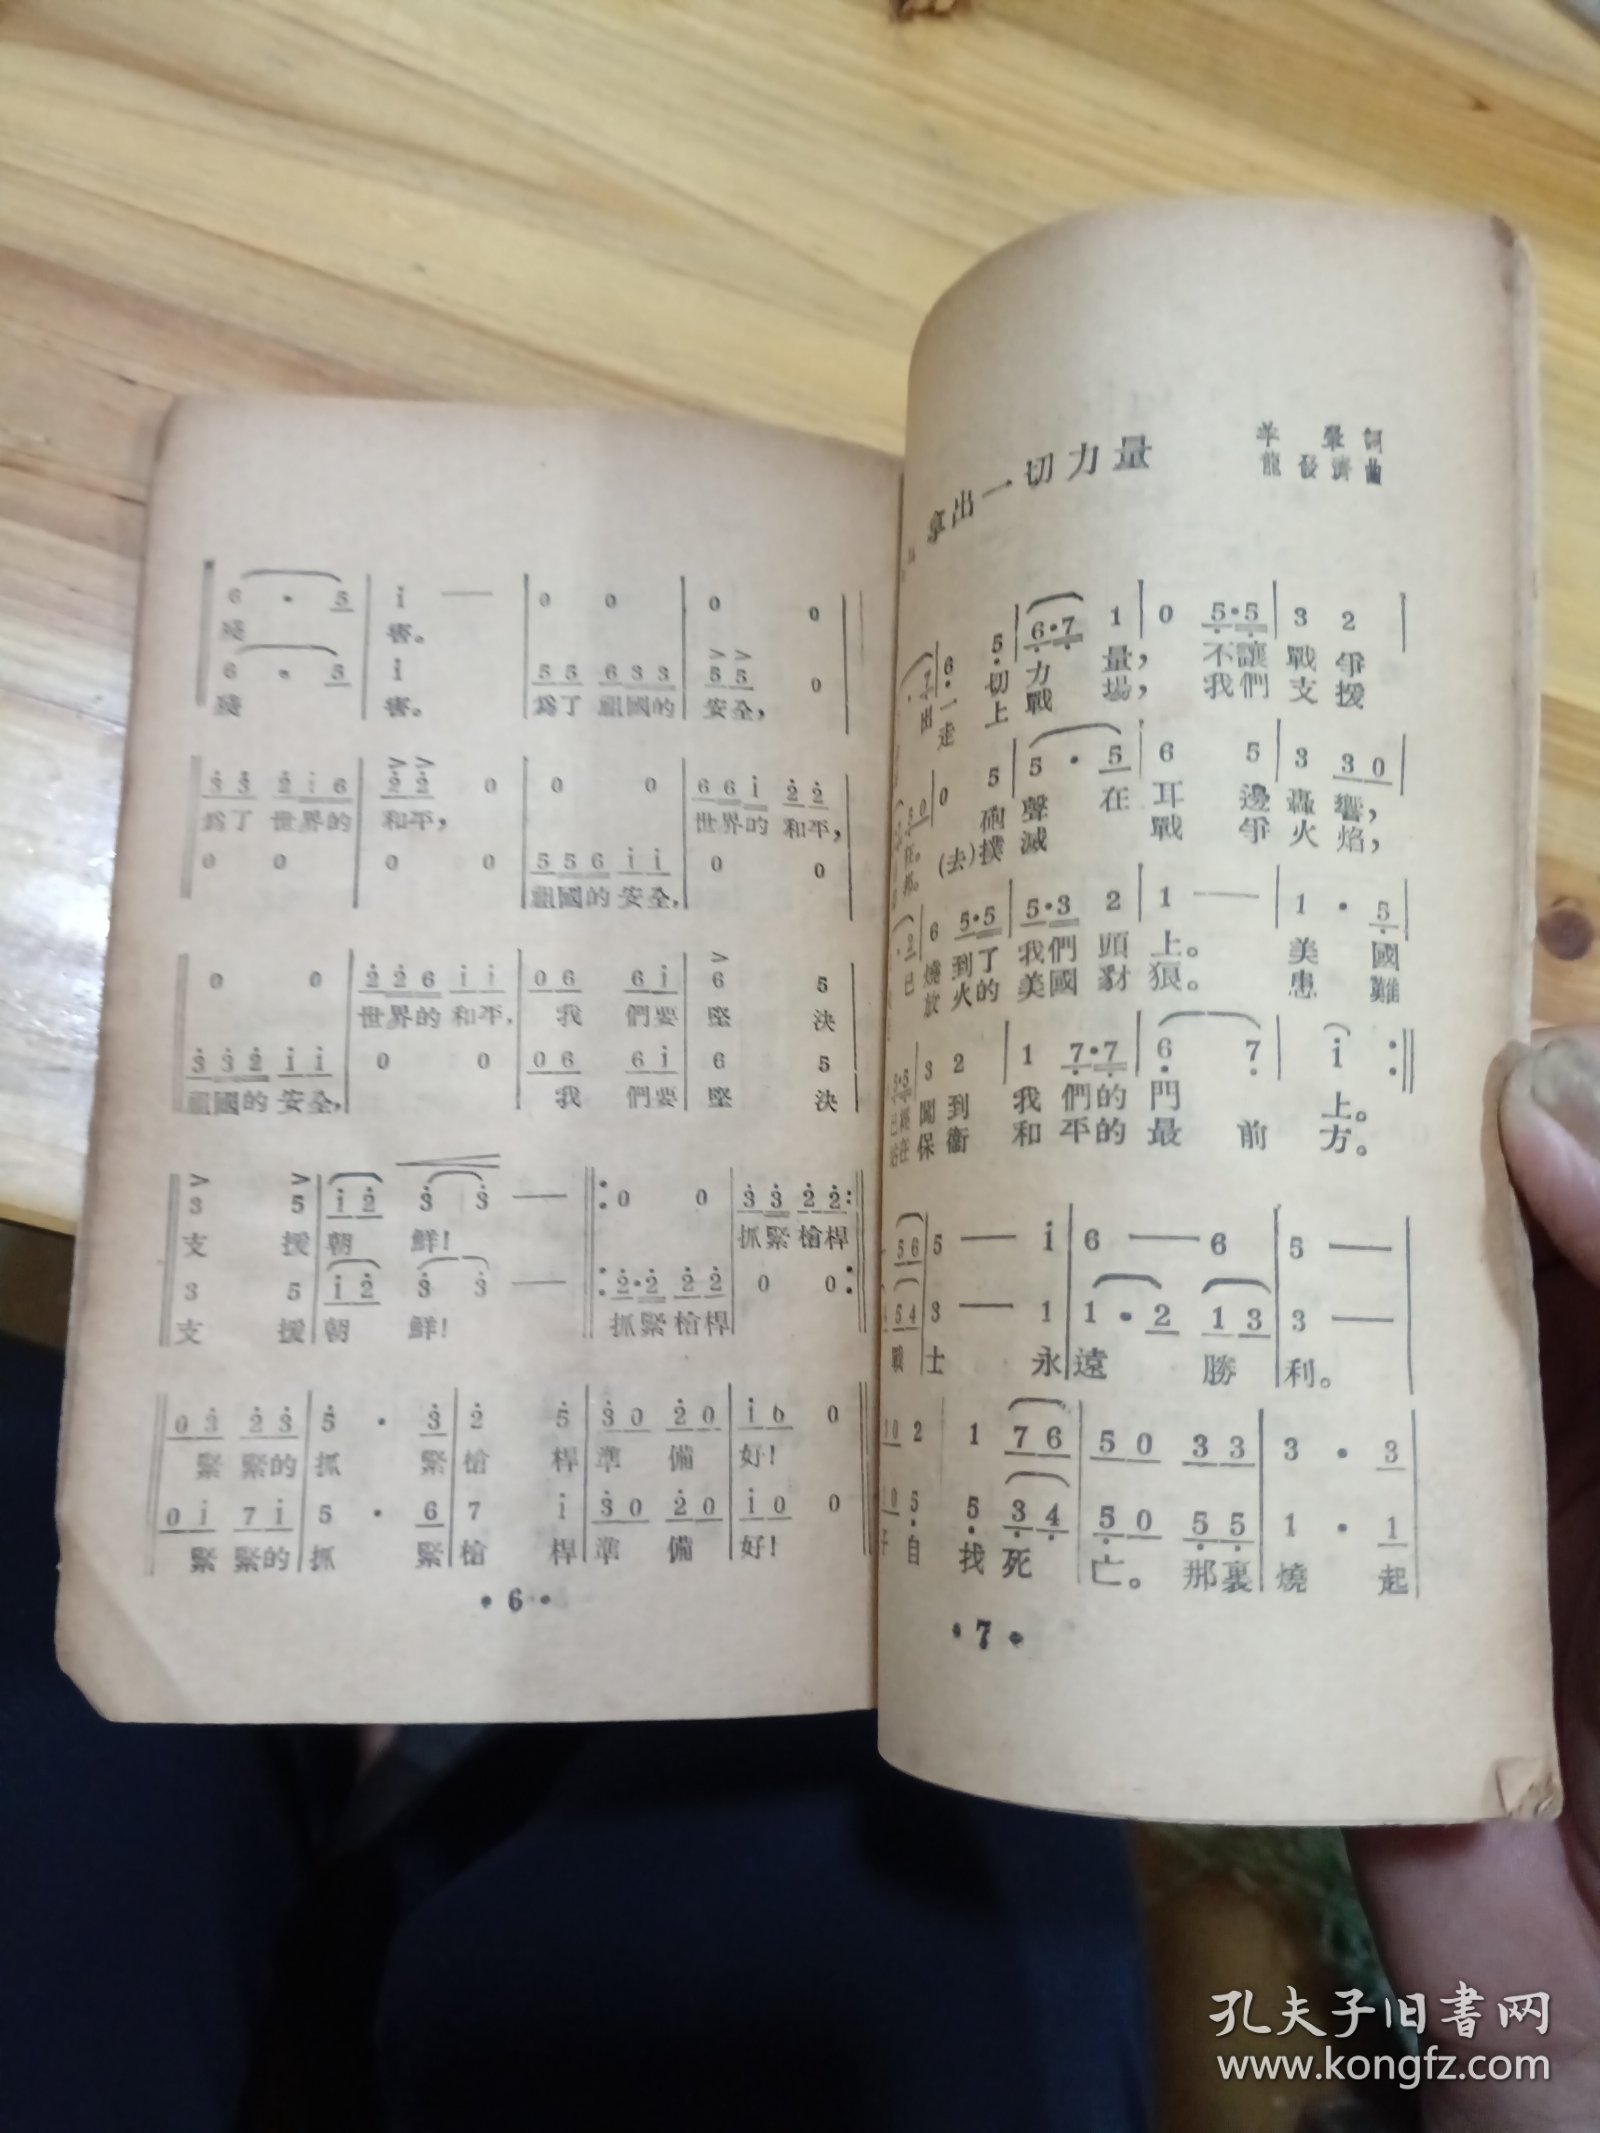 6 · 5 | i — | 0 0 | 0 0
殘 害。
6 · 5 | i | 5 5 6 3 3 | 5 5 0
殘 害。 爲了 祖國的 安全,
3 3 2 i 6 | 2 2 0 | 0 0 | 6 6 i 2 2
爲了 世界的 和平, 世界的 和平,
0 0 | 0 0 | 5 5 6 i i | 0 0
祖國的 安全,
0 0 | 2 2 6 i i | 0 6 6 i | 6 5
世界的 和平, 我 們要 堅 決
3 3 2 i i | 0 0 | 0 6 6 i | 6 5
祖國的 安全, 我 們要 堅 決
3 5 | i 2 3 3 — 0 0 | 3 3 2 2
支 援 朝 鮮! 抓緊 槍桿
3 5 | i 2 3 3 — 2·2 2 2 | 0 0
支 援 朝 鮮! 抓緊 槍桿
0 3 2 3 | 5 · 3 | 2 5 | 3 0 2 0 | i 0 0
緊 緊的 抓 緊 槍 桿 準 備 好!
0 i 7 i | 5 · 6 | 7 i | 3 0 2 0 | i 0 0
緊 緊的 抓 緊 槍 桿 準 備 好!
· 6 ·
拿出一切力量
羊 詞
龍發濟 曲
6 5 | 6·7 1 | 0 5·5 | 3 2
出 一 切 力 量, 不讓 戰 爭
走 上 戰 場, 我們 支 援
0 5 | 5 · 5 | 6 5 | 3 3 0
在。 砲 聲 在 耳 邊 轟 響,
(去) 撲 滅 戰 爭 火 焰,
6 5·5 | 5·3 2 | 1 — | 1 · 5
已 燒 到了 我們 頭 上。 美 國
放 火的 美國 豺 狼。 患 難
3 2 | 1 7·7 | 6 7 | i
闖 到 我 們的 門 上。
保 衞 和 平的 最 前 方。
5 6 | 5 — i | 6 — 6 | 5 —
5 4 | 3 — 1 | 1 · 2 1 3 | 3 —
戰 士 永 遠 勝 利。
2 1 7 6 | 5 0 3 3 | 3 · 3
5 5 3 4 | 5 0 5 5 | 1 · 1
自 找 死 亡。 那裏 燒 起
· 7 ·
孔夫子旧書网
www.kongfz.com